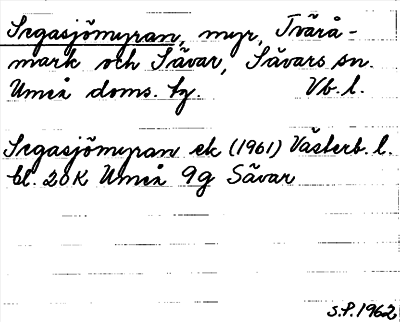 Segasjömyran, myr, Tvärå-
mark och Sävar, Sävars sn.
Umeå doms. tg. Vb. l.
Segasjömyran ek (1961) Västerb. l.
bl. 20K Umeå 9g Sävar
S.P. 1962